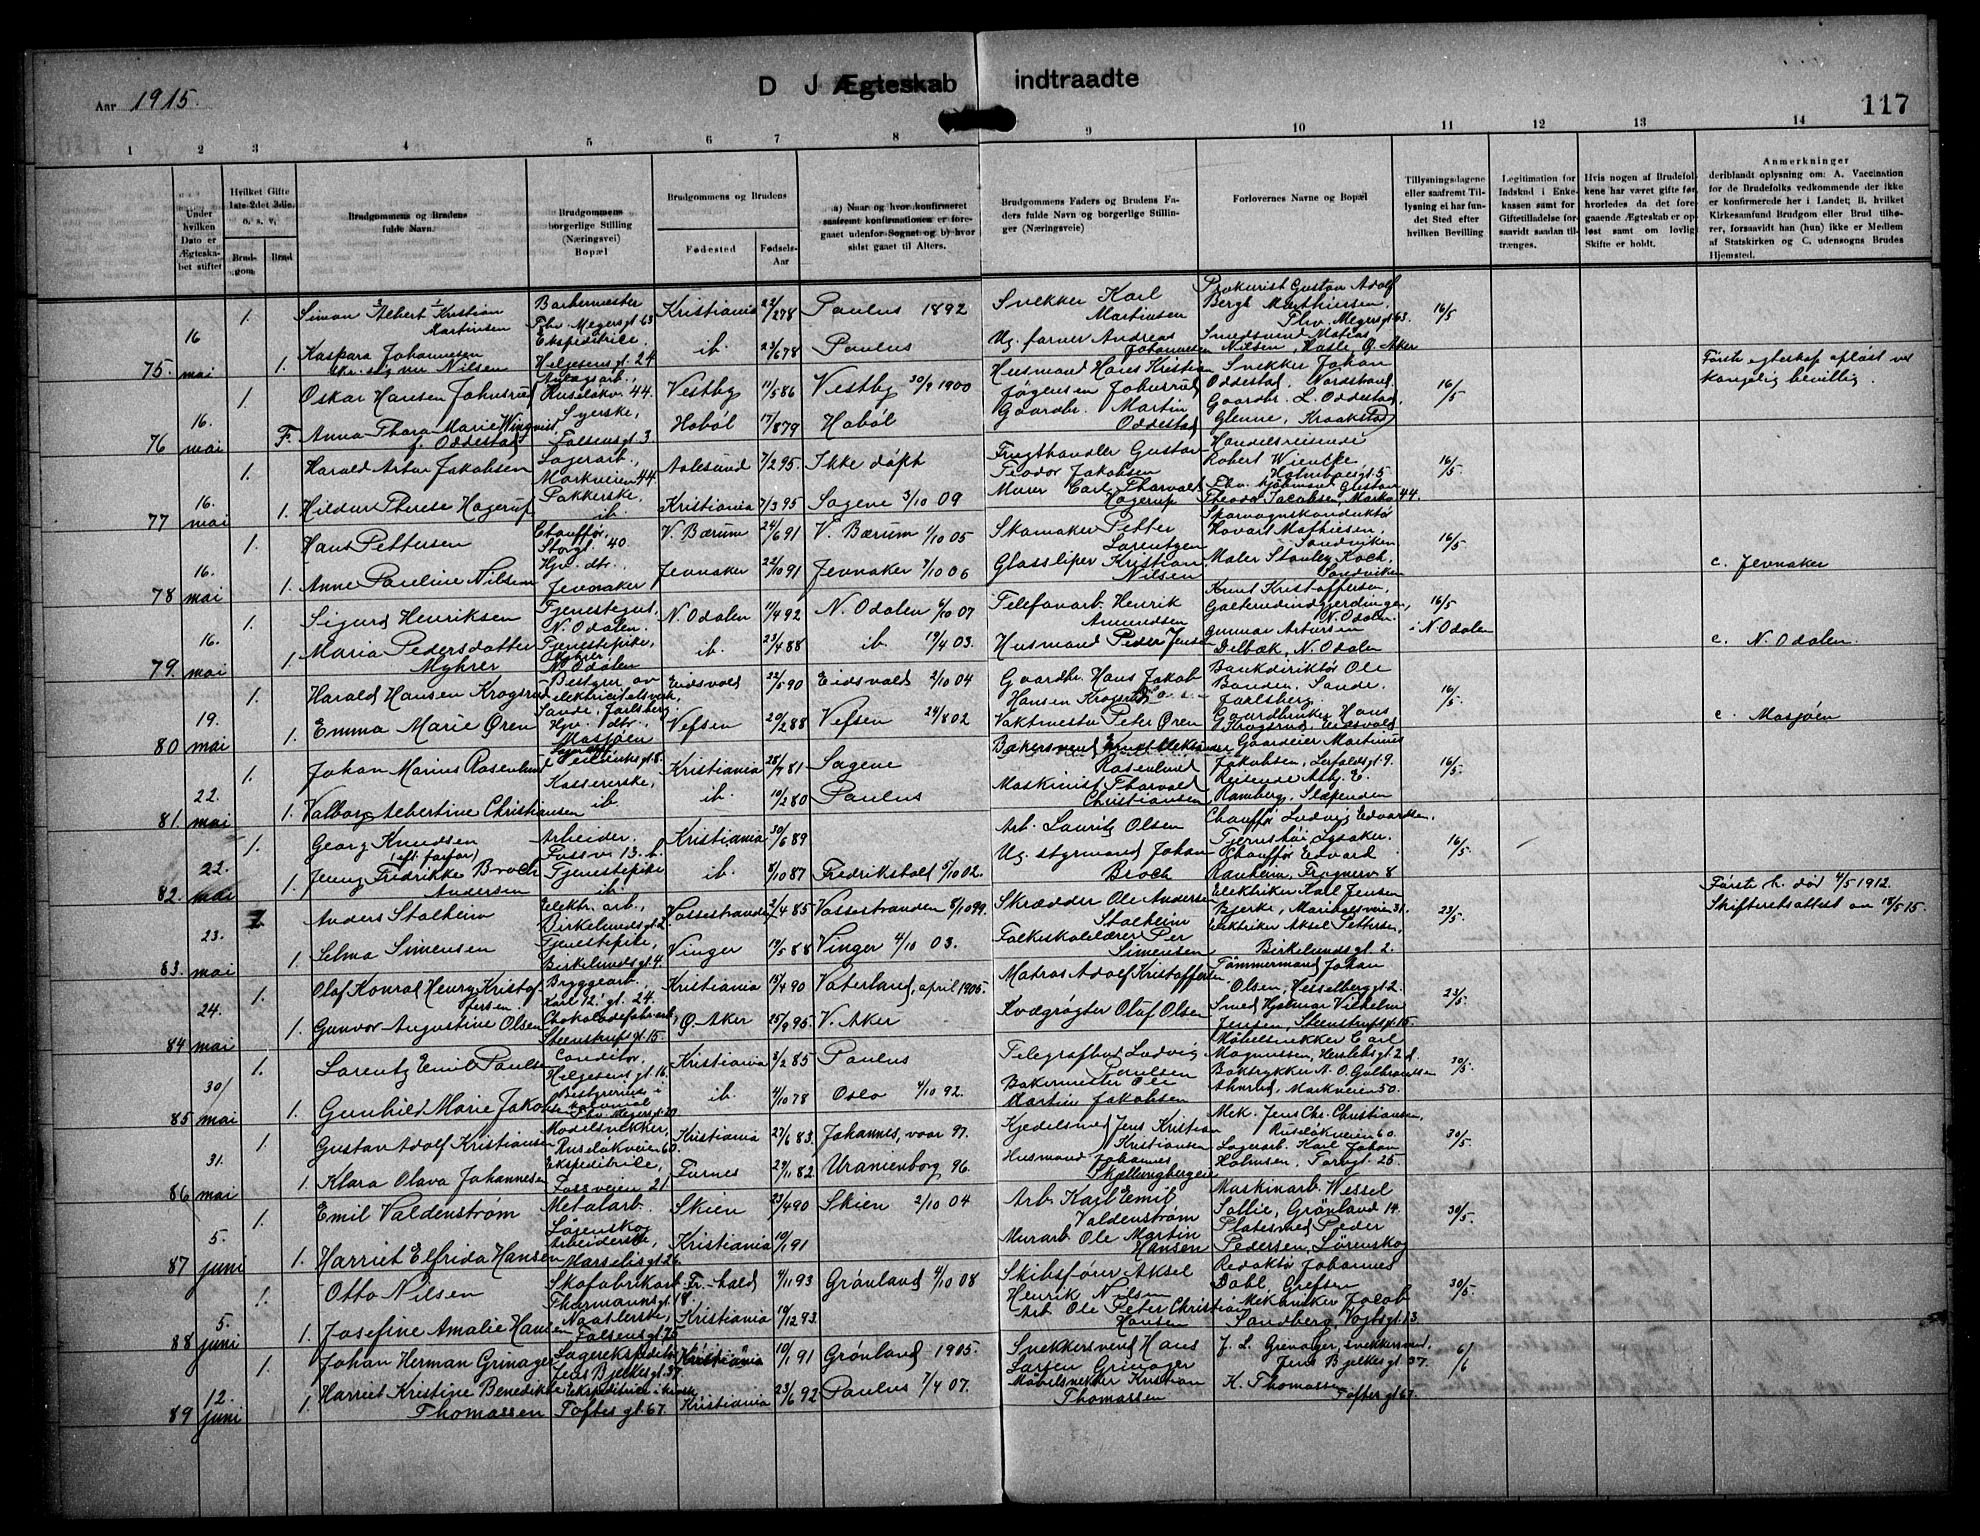 Aar 1915.
D J Ægteskab indtraadte
117
1 2 3 4 5 6 7 8 9 10 11 12 13 14
Under hvilken Dato er Ægteskabet stiftet
Hvilket Gifte 1ste 2det 3die o. s. v.
Brudgom
Brud
Brudgommens og Brudens fulde Navn.
Brudgommens borgerlige Stilling (Næringsvei) Bopæl
Brudgommens og Brudens
Fødested
Fødsels-Aar
a) Naar og hvor konfirmeret saafremt konfirmationen er foregaaet udenfor Sognet og b) hvor sidst gaaet til Alters.
Brudgommens Faders og Brudens Faders fulde Navn og borgerlige Stillinger (Næringsveie)
Forlovernes Navne og Bopæl
Tillysningsdagene eller saafremt Tillysning ei har fundet Sted efter hvilken Bevilling
Legitimation for Indskud i Enkekassen samt for Giftetilladelse forsaavidt saadan tiltrænges.
Hvis nogen af Brudefolkene har været gifte før, hvorledes da det foregaaende Ægteskab er opløst samt om lovlig Skifte er holdt.
Anmerkninger
deriblandt oplysning om: A. Vaccination for de Brudefolks vedkommende der ikke er konfirmerede her i Landet; B. hvilket Kirkesamfund Brudgom eller Brud tilhører, forsaavidt han (hun) ikke er Medlem af Statskirken og C. udensogns Brudes Hjemsted.
75. 16 mai
1. Simon Albert Kristian Martinsen Barbermester Thv. Meyersgt 63 Kristiania 22/2 78 Paulus 1892 Snekker Karl Martinsen Prokurist Gustav Adolf Bergh Marthinsen, Thv. Meyersgt 63. 16/5
1. Kaspara Johannesen Nilsen Ekspeditrice, Helgesensgt. 24 ib. 23/6 78 Paulus Ug. farver Andreas Johannesen Smedsvend Matias Nilsen, Hasle Ø. Aker
76 16. mai
1. Oskar Hansen Johnsrud Anlægsarb. Ruseløkv. 44. Vestby 11/5 86 Vestby 30/9 1900 Husmand Hans Kristian Jøgensen Johnsrud Snekker Johan Oddestad, Nordstrand 16/5 Første egteskap opløst ved kongelig bevillig.
F. Anna Thora Marie Wingvist, f. Oddestad Syerske, Falsensgt. 3 Hobøl 17/8 79 Hobøl Gaardbr. Martin Oddestad Gaardbr. L. Oddestad, Glenne, Kraakstad
77 16. mai
1. Harald Artur Jakobsen Lagerarb., Markveien 44. Aalesund 7/2 95 Ikke døpt Frugthandler Gustav Teodor Jakobsen Handelsreisende Robert Wiencke Holmboesgt. 5 16/5
1. Hildur Therese Hagerup Pakkerske, ib. Kristiania 7/3 95 Sagene 3/10 09 Murer Carl Tharvald Hagerup Gustav Theodor Jacobsen, Markv. 44.
78 16. mai
1. Hans Pettersen Chauffør, Storgt. 40. V. Bærum 24/6 91 V. Bærum 1/10 05 Skomaker Petter Lorentzen Sporvognskonduktør Havart Mathiesen, Sandviken 16/5
1. Anne Pauline Nilsen Hjv. dtr. Jevnaker Jevnaker 22/10 91 Jevnaker 7/10 06 Glassliper Kristian Nilsen Maler Stanley Koch, Sandviken c. Jevnaker
79. 16. mai
1. Sigurd Henriksen Tjenestegut, N. Odalen. N. Odalen 11/4 92 N. Odalen 6/10 07 Telefonarb. Henrik Amundsen Knut Kristoffersen, N. Odalen. 16/5 i N Odalen
1. Maria Pedersdatter Myhrer Tjenestepike, Myhrer N. Odalen ib. 23/4 88 ib. 19/4 03. Husmand Peder Jensen Gunnar Artursen Delbæk, N. Odalen c. N. Odalen.
80 19. mai
1. Harald Hansen Krogsrud Bestyrer av elektricitetsverk Sande, Jarlsberg. Eidsvold 22/5 90 Eidsvold 2/10 04 Gaardbr. Hans Jakob Hansen Krogsrud Bankdirektør Ole Sande, Jarlsberg 16/5
1. Emma Marie Øren Hjv. dtr., Mosjøen Vefsen 20/2 88 Vefsen 24/8 02 Vaktmester Peter Øren Gaardbruker Hans Krogsrud, Eidsvold c. Mosjøen
81. 22. mai
1. Johan Marius Rosenlund Kristiania 28/7 81 Sagene Bakersvend Knut Aleksander Rosenlund Gaardeier Martinus Jakobsen 16/5.
1. Valborg Albertine Christiansen Kassererske, ib. ib. 10/2 80 Paulus Maskinist Tharvald Christiansen Reisende Asbj. E. Ramberg, Slæpenden
82. 22. mai
1. Georg Knudsen (eft. farfar) Arbeider. Fossv. 13. b. Kristiania 30/6 89 Arb. Lauritz Olsen Chauffør Ludvig Edvardsen, Lysaker. 16/5.
1. Jenny Fredrikke Broch Andersen Tjenestepike ib. ib. 8/10 87 Fredrikstad 5/10 02. Ug. styrmand Johan Broch Chauffør Edvard Ranheim, Frognerv 8
83. 23. mai
2. Anders Stalheim Elektr. arb., Birkelundsgt 2. Vossestranden 2/4 85 Vossestranden 8/10 99. Skrædder Ole Andersen Stalheim Elektriker Karl Jensen Bjerke, Maridalsveien 31. 23/5. Første h. død 4/5 1912. Skifteretsattest av 18/5 15.
1. Selma Simensen Tjenestepike, Birkelundsgt 4. Vinger 19/5 88 Vinger 4/10 03. Folkeskolelærer Per Simensen Elektriker Aksel Pettersen, Birkelundsgt. 2.
84 24. mai
1. Olaf Konrad Henry Kristoffersen Bryggearb., Karl 12' gt. 24. Kristiania 15/4 90 Vaterland, april 1905. Matros Adolf Kristoffersen Tømmermand Johan Olsen, Hesselbergsgt. 2. 23/5.
1. Gunvor Augustine Olsen Chokoladefabr. arb, Steenstrupsgt. 15. Ø. Aker 25/9 95 V. Aker Kvægrøgter Olaf Olsen Smed Hjalmar Vilhelm Jensen, Steenstrupsgt. 15.
85 30/ mai
1. Lorentz Emil Paulsen Conditor, Helgesensgt. 16. Kristiania 3/2 85 Paulus Telegrafbud Ludvig Paulsen Møbelsnekker Carl Magnussen, Herslebsgt. 2 d. 30/5.
1. Gunhild Marie Jakobsen Bestyrerinde i kolonial Thv. Meyersgt. ib. 4/10 78 Oslo 4/10 92. Bakermester Ole Martin Jakobsen Boktrykker A. O. Gulbrandsen Markveien 50.
86 31. mai
1. Gustav Adolf Kristiansen Modelsnekker, Ruseløkveien 60. Kristiania 27/6 83. Johannes, vaar 97. Kjedelsmed Jens Kristian Kristiansen Mek. Jens Chr. Christiansen, Ruseløkveien 60. 30/5.
1. Klara Olava Johannesen Ekspeditrice, Fossveien 21 Furnes 29/11 82. Uranienborg 96. Husmand Johannes Skjellungbergeie Lagerarb. Karl Johan Holmsen, Torvgt. 25.
87 5. juni
1. Emil Valdenstrøm Metalarb. Lørenskog Skien 23/4 90 Skien 2/10 04 Arb. Karl Emil Valdenstrøm Maskinarb. Wessel Sollie, Grønland 14. 30/5.
1. Harriet Elfrida Hansen Arbeiderske, Marselisgt 26 Kristiania 10/1 91 Murarb. Ole Martin Hansen Platesmed Peder Pedersen, Lørenskog
88 5. juni
1. Otto Nilsen Skofabrikarb. Thærmannsgt. 8. Fr.hald 4/11 93 Grønland 4/10 08 Skibsfører Aksel Henrik Nilsen Redaktør Johannes Dahl, Grefsen 30/5.
1. Josefine Amalie Hansen Naatlerske, Falsensgt. 75 Kristiania 10/12 93. Arb. Ole Peter Christian Hansen Mekaniker Jacob Sandberg, Vogtsgt. 13.
89 12. juni
1. Johan Herman Grinager Lagerekspeditør Jens Bjelkesgt. 37. Kristiania 10/1 91 Grønland 1905. Snekkersvend Hans Larsen Grinager J. L. Grinager, snekkersvend, Jens Bjelkesgt. 37. 6/6
1. Harriet Kristine Benedikte Thomassen Ekspeditrice Toftesgt. 67. Kristiania 23/6 92 Paulus 7/4 07. Møbelsnekker Kristian Thomassen K. Thomassen Toftesgt 67.